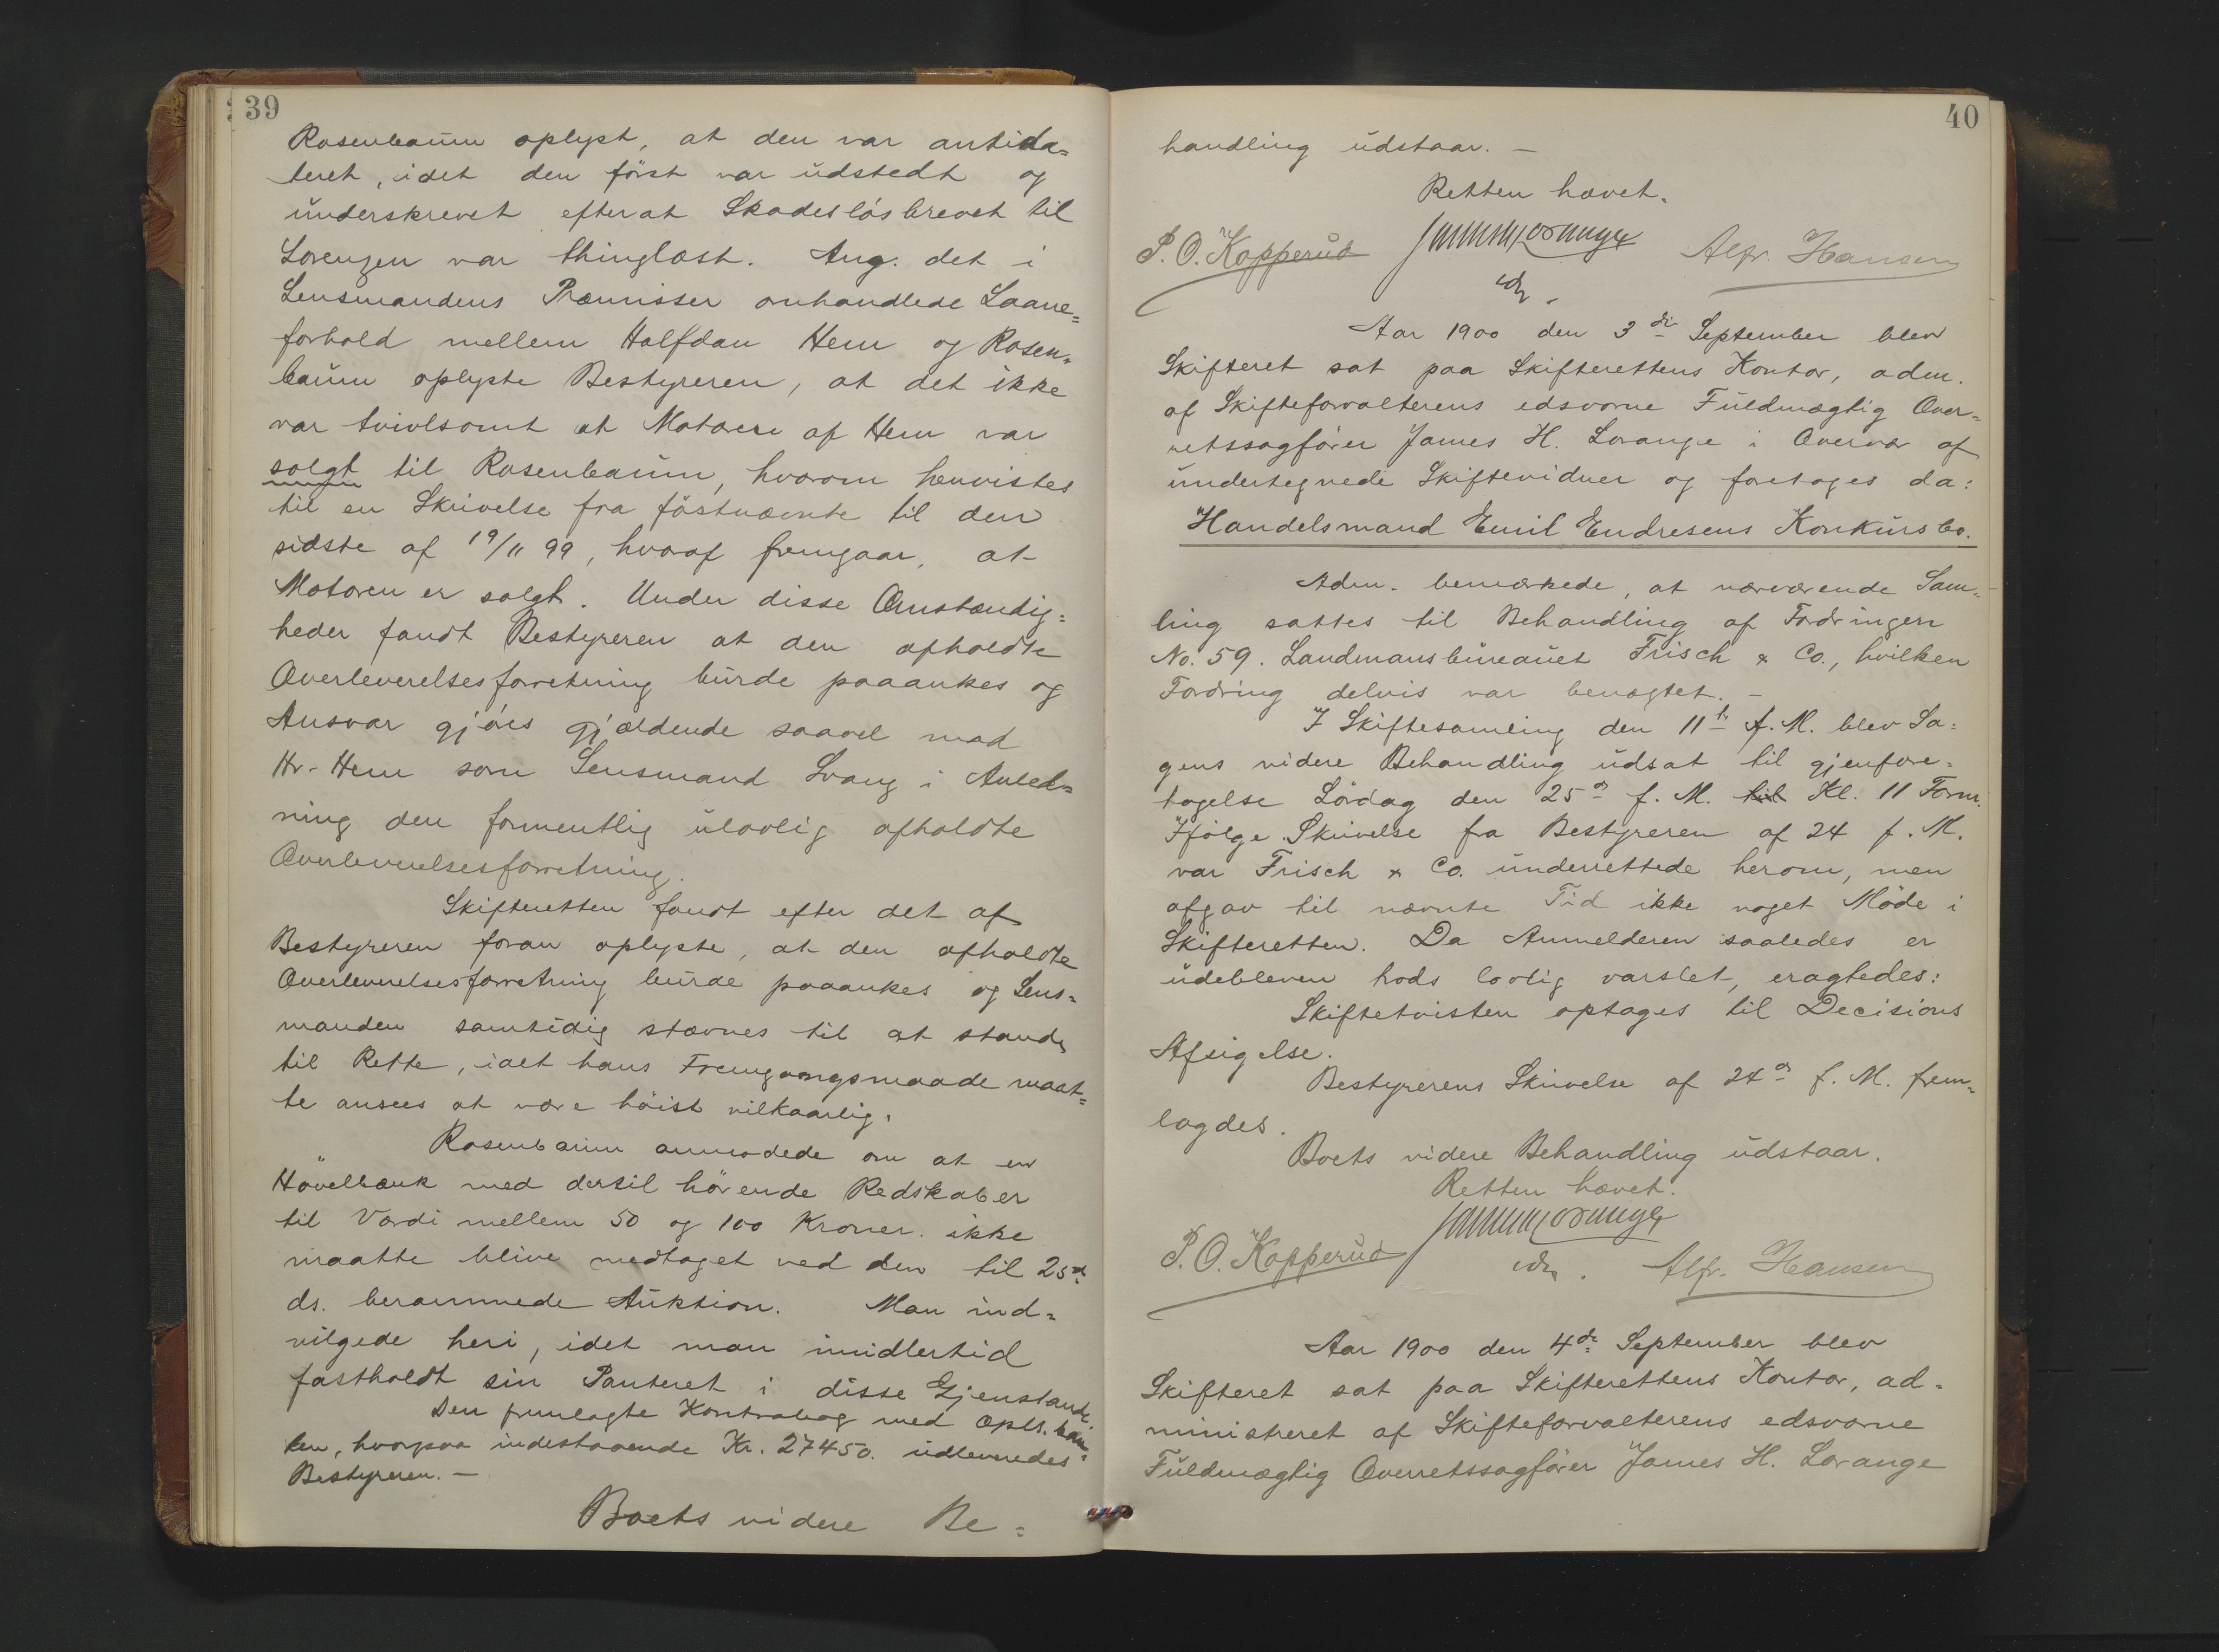 39
Rosenbaum oplyst, at den var antida=
teret, idet den först var udstedt og
underskrevet efterat Skadeslösbrevet til
Lorenzen var thinglæst. Ang. det i
Lensmandens Præmisser omhandlede Laane=
forhold mellem Halfdan Hem og Rosen=
baum oplyste Bestyreren, at det ikke
var tvivlsomt at Motoren af Hem var
solgt til Rosenbaum, hvorom henvistes
til en Skrivelse fra förstnævnte til den
sidste af 19/11 99, hvoraf fremgaar, at
Motoren er solgt. Under disse Omstændig=
heder fandt Bestyreren at den afholdte
Overleverelsesforretning burde paaankes og
Ansvar gjöres gjældende saavel mod
Hr. Hem som Lensmand Svang i Anled=
ning den formentlig ulovlig afholdte
Overleverelsesforretning.
Skifteretten fandt efter det af
Bestyreren foran oplyste, at den afholdte
Overleverelsesforretning burde paaankes og Lens=
manden samtidig stævnes til at stande
til Rette, idet hans Fremgangsmaade maat=
te ansees at være höist vilkaarlig.
Rosenbaum anmodede om at en
Hövelbænk med dertil hörende Redskaber
til Værdi mellem 50 og 100 Kroner ikke
maatte blive medtaget ved den til 25de
ds. berammede Auktion. Man ind=
vilgede heri, idet man imidlertid
fastholdt sin Panteret i disse Gjenstande.
Den fremlagte Kontrabog med Opls. ban=
ken, hvorpaa indestaaende Kr. 27450. udleveredes
Bestyreren. —
Boets videre Be=
40
handling udstaar. —
Retten hævet.
P. O. Kopperud James H. Lorange Alfr. Hansen
Aar 1900 den 3die September blev
Skifteret sat paa Skifterettens Kontor, adm.
af Skifteforvalterens edsvorne Fuldmægtig Over=
retssagförer James H. Lorange i Overvær af
undertegnede Skiftevidner og foretoges da:
Handelsmand Emil Endresens Konkursbo.
Adm. bemærkede, at nærværende Sam=
ling sattes til Behandling af Fordringen
No. 59. Landmansbureauet Frisch & Co., hvilken
Fordring delvis var benægtet. —
I Skiftesamling den 11te f. M. blev Sa=
gens videre Behandling udsat til gjenfore=
tagelse Lördag den 25de f. M. til Kl. 11 Form.
Ifölge Skrivelse fra Bestyreren af 24 f. M.
var Frisch & Co. underrettede herom, men
afgav til nævnte Tid ikke noget Möde i
Skifteretten. Da Anmelderen saaledes er
udebleven trods lovlig varslet, eragtedes:
Skiftetvisten optages til Decisions
Afsigelse.
Bestyrerens Skrivelse af 24de f. M. frem=
lagdes.
Boets videre Behandling udstaar.
Retten hævet.
P. O. Kopperud James H. Lorange Alfr. Hansen
Aar 1900 den 4de September blev
Skifteret sat paa Skifterettens Kontor, ad=
ministreret af Skifteforvalterens edsvorne
Fuldmægtig Overretssagförer James H. Lorange